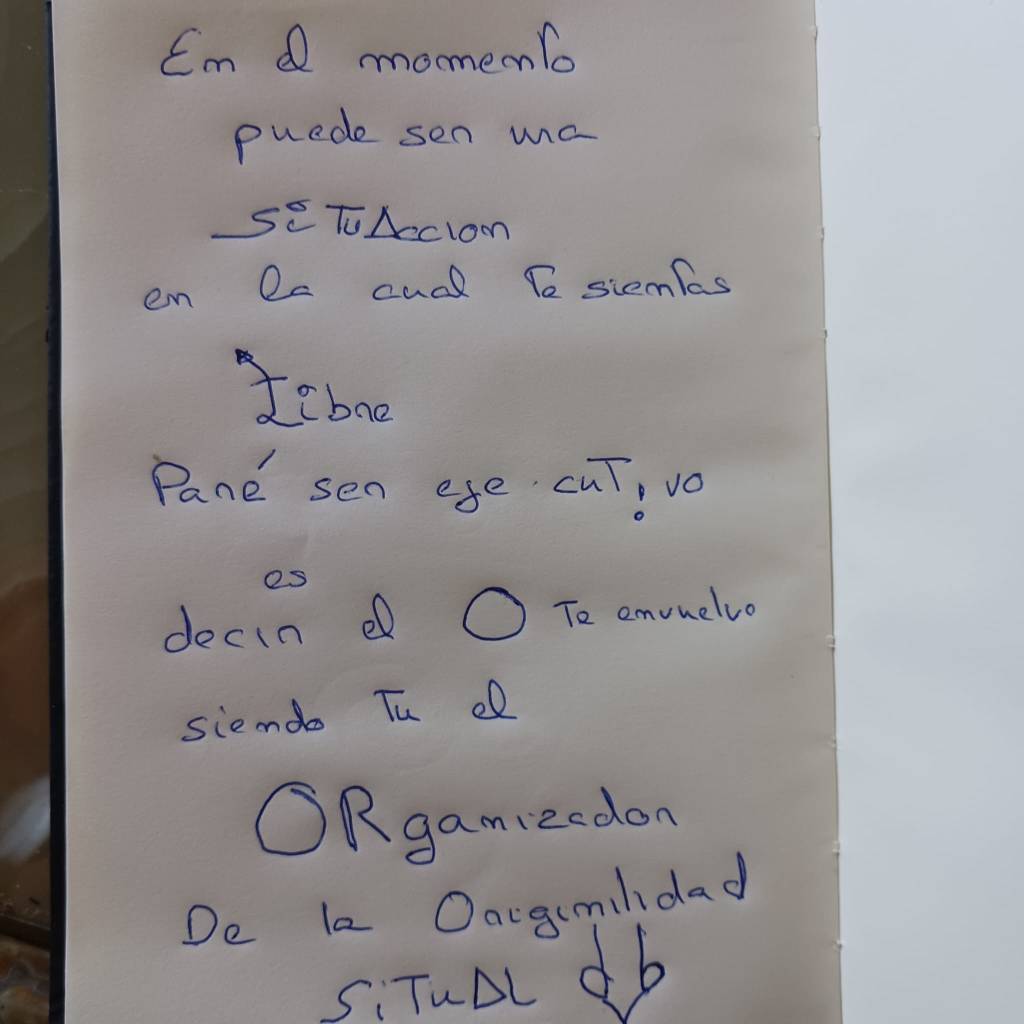 En el momento
puede ser una
SiTUAccion
en la cual Te sientas
Libre
Paré ser eje.cuT¡vo
es
decir el O Te envuelvo
siendo Tu el
ORganizador
De la Originilidad
SiTuAL db